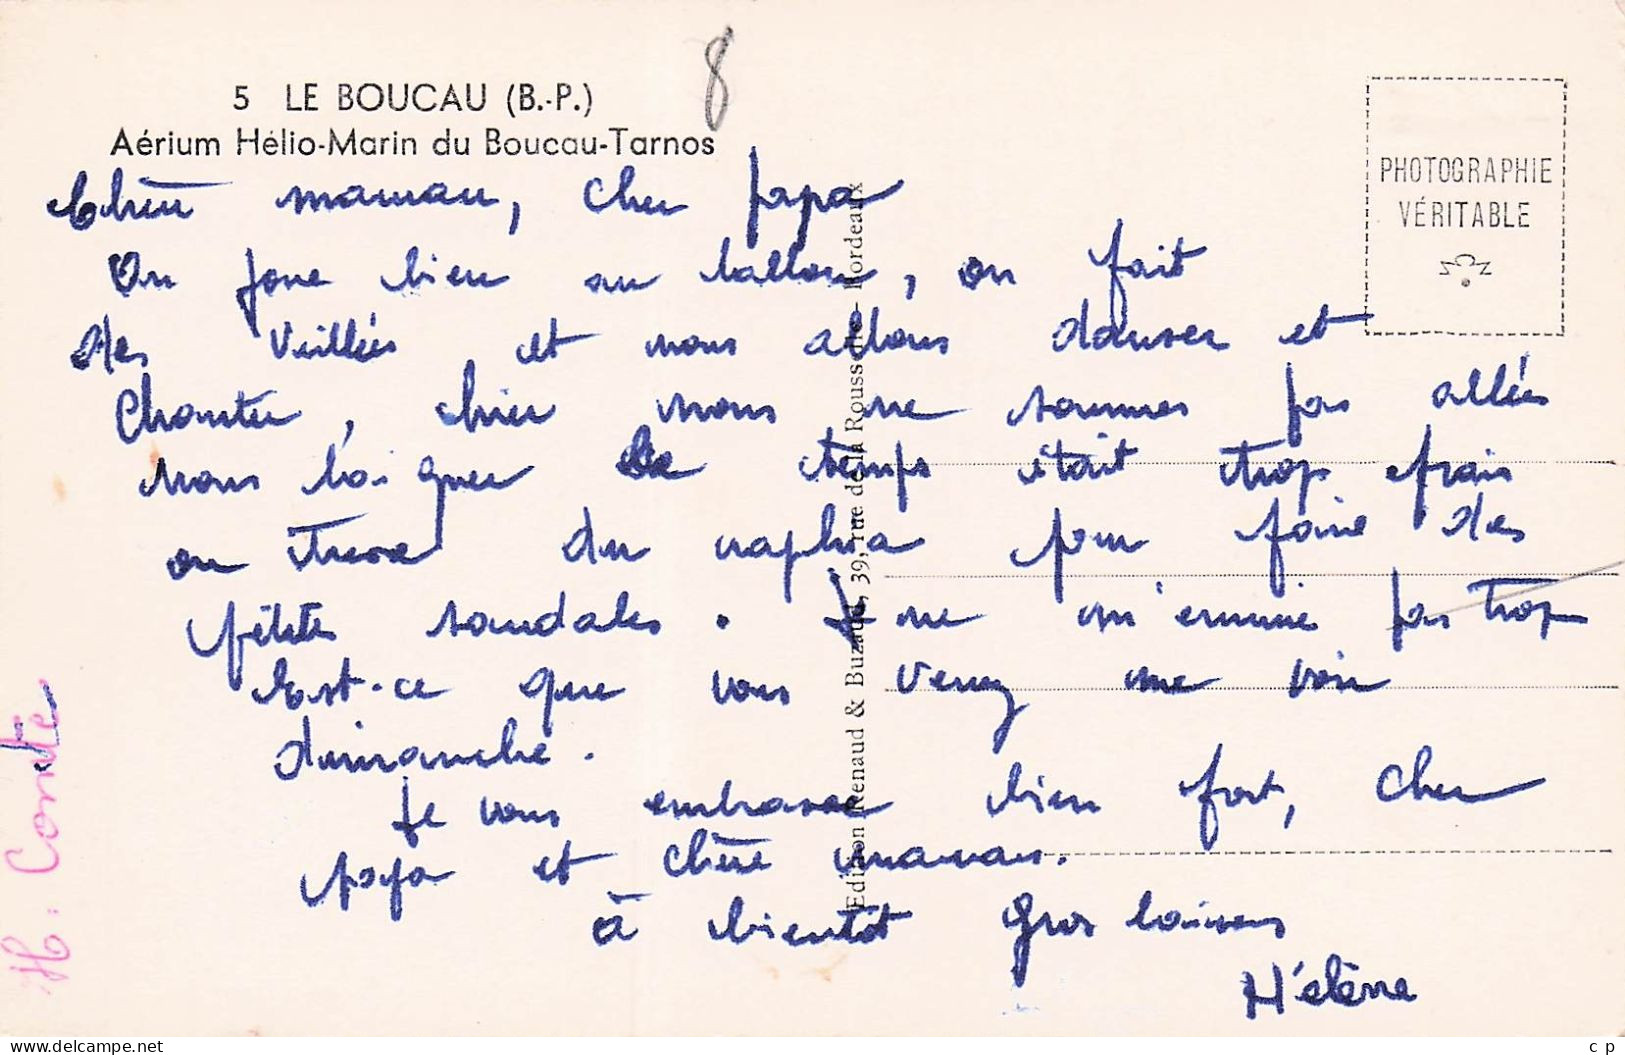 8
5 LE BOUCAU (B.-P.)
Aérium Hélio-Marin du Boucau-Tarnos
PHOTOGRAPHIE
VÉRITABLE
Chère maman, Cher papa
On joue bien au ballon, on fait
des veillées et nous allons danser et
Chanter, hier nous ne sommes pas allées
nous baigner le temps était trop frais
on tresse du raphia pour faire des
petites sandales. Je ne m'ennuie pas trop
Est-ce que vous venez me voir
dimanche.
Je vous embrasse bien fort, cher
papa et chère maman.
à bientôt Gros baisers
Hélène
Edition Renaud & Buzaud, 39, rue de la Rousselle - Bordeaux
H. Conte
c p
www.delcampe.net